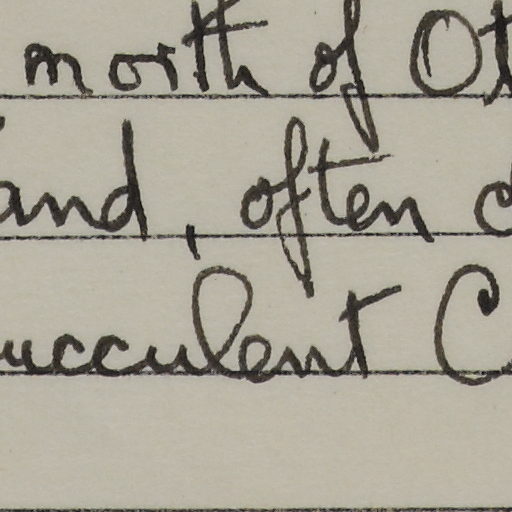 north of Ot
and, often c
ucculent C